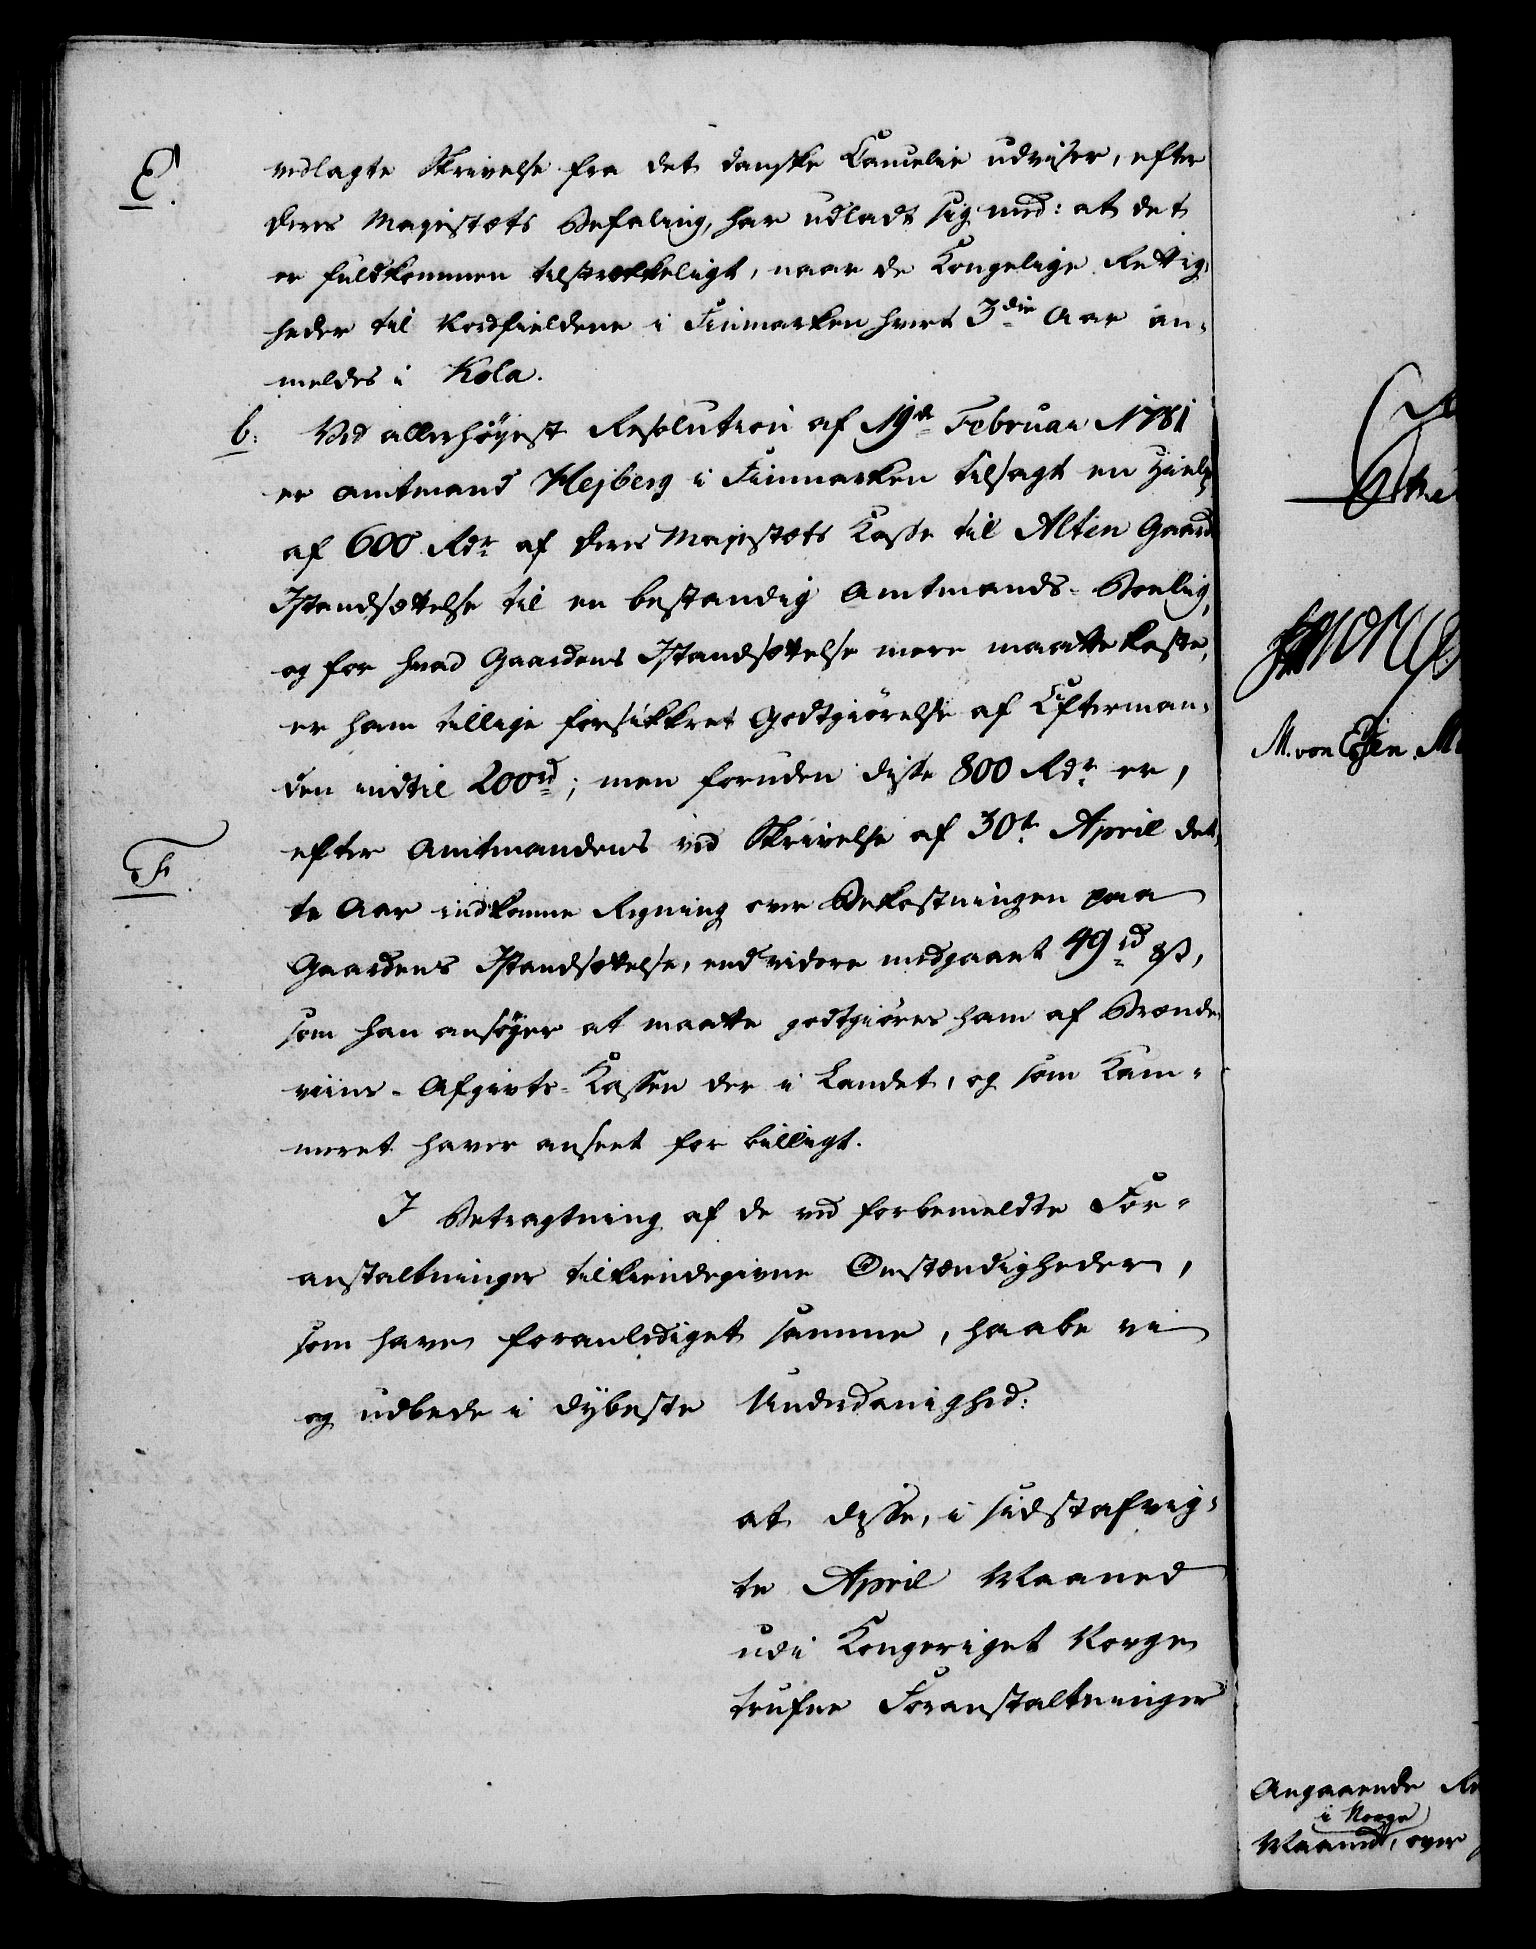 E.
vedlagte Skrivelse fra det danske Cancelie udviser, efter
Deres Majestæts Befaling, har udladt sig med: at det
er fuldkommen tilstrækkeligt, naar de Kongelige Rettig-
heder til Nordfieldene i Finmarken hvert 3die Aar an-
meldes i Kola.
6. Ved allerhøyest Resolution af 19de Februar 1781
er Amtmand Hejberg i Finmarken tilsagt en Hielp
af 600 Rdr af Deres Majestæts Kasse til Alten Gaards
Istandsættelse til en bestandig Amtmands-Boelig,
og for hvad Gaardens Istandsættelse mere maatte koste,
er ham tillige forsikkret Godtgiørelse af Efterman-
den indtil 200rd; men foruden disse 800 Rdr er,
F.
efter Amtmandens ved Skrivelse af 30te April det-
te Aar indkomne Regning over Bekostningen paa
Gaardens Istandsættelse, end videre medgaaet 49rd 8ß,
som han ansøger at maatte godtgiøres ham af Brænde-
viins-Afgivts-Kassen der i Landet, og som Kam-
meret haver anseet for billigt.
I Betragtning af de ved forbemeldte For-
anstaltninger tilkiendegivne Omstændigheder,
som have foranlediget samme, haabe vi
og udbede i dybeste Underdanighed:
at disse, i sidstafvig-
te April Maaned
udi Kongeriget Norge
trufne Foranstaltninger
M. von Essen. M
Angaaende
i Norge
Maaned, over